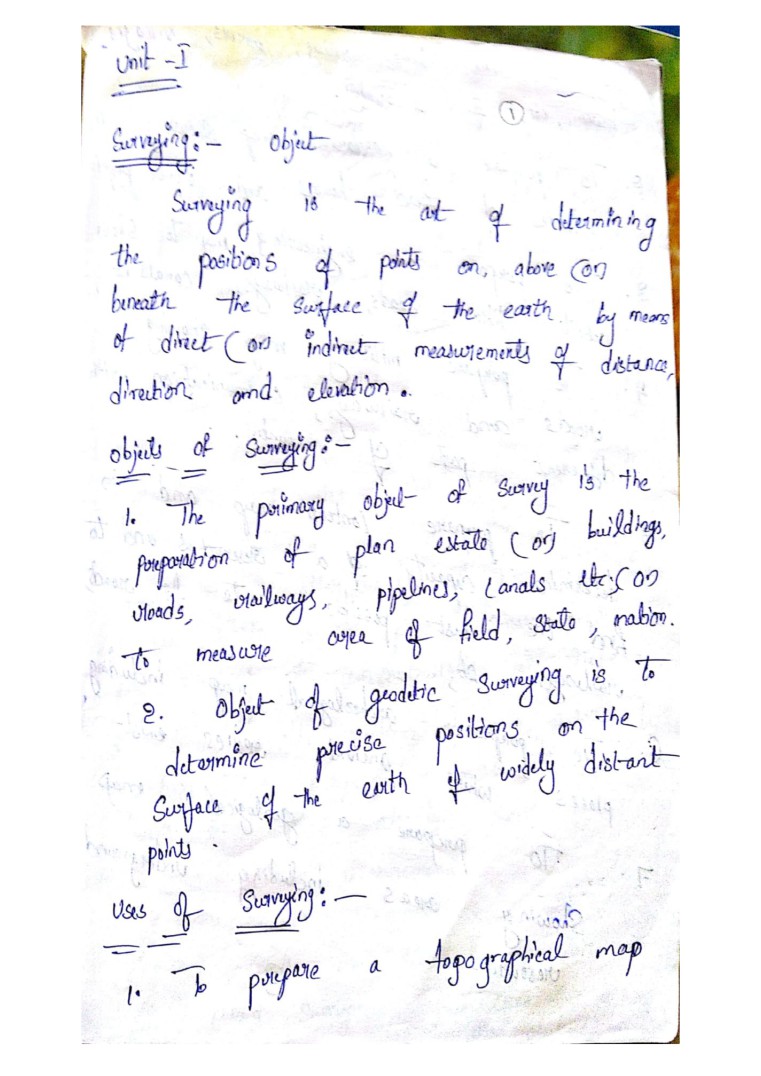 Unit - I
1
Surveying:- Object
Surveying is the art of determining
the positions of points on, above (or)
beneath the surface of the earth by means
of direct (or) indirect measurements of distance,
direction and elevation.
Objects of Surveying:-
1. The primary object of survey is the
preparation of plan estate (or) buildings,
roads, railways, pipelines, canals etc; (or)
To measure area of field, state, nation.
2. Object of geodetic surveying is to
determine precise positions on the
surface of the earth of widely distant
points.
Uses of Surveying:-
1. To prepare a topographical map